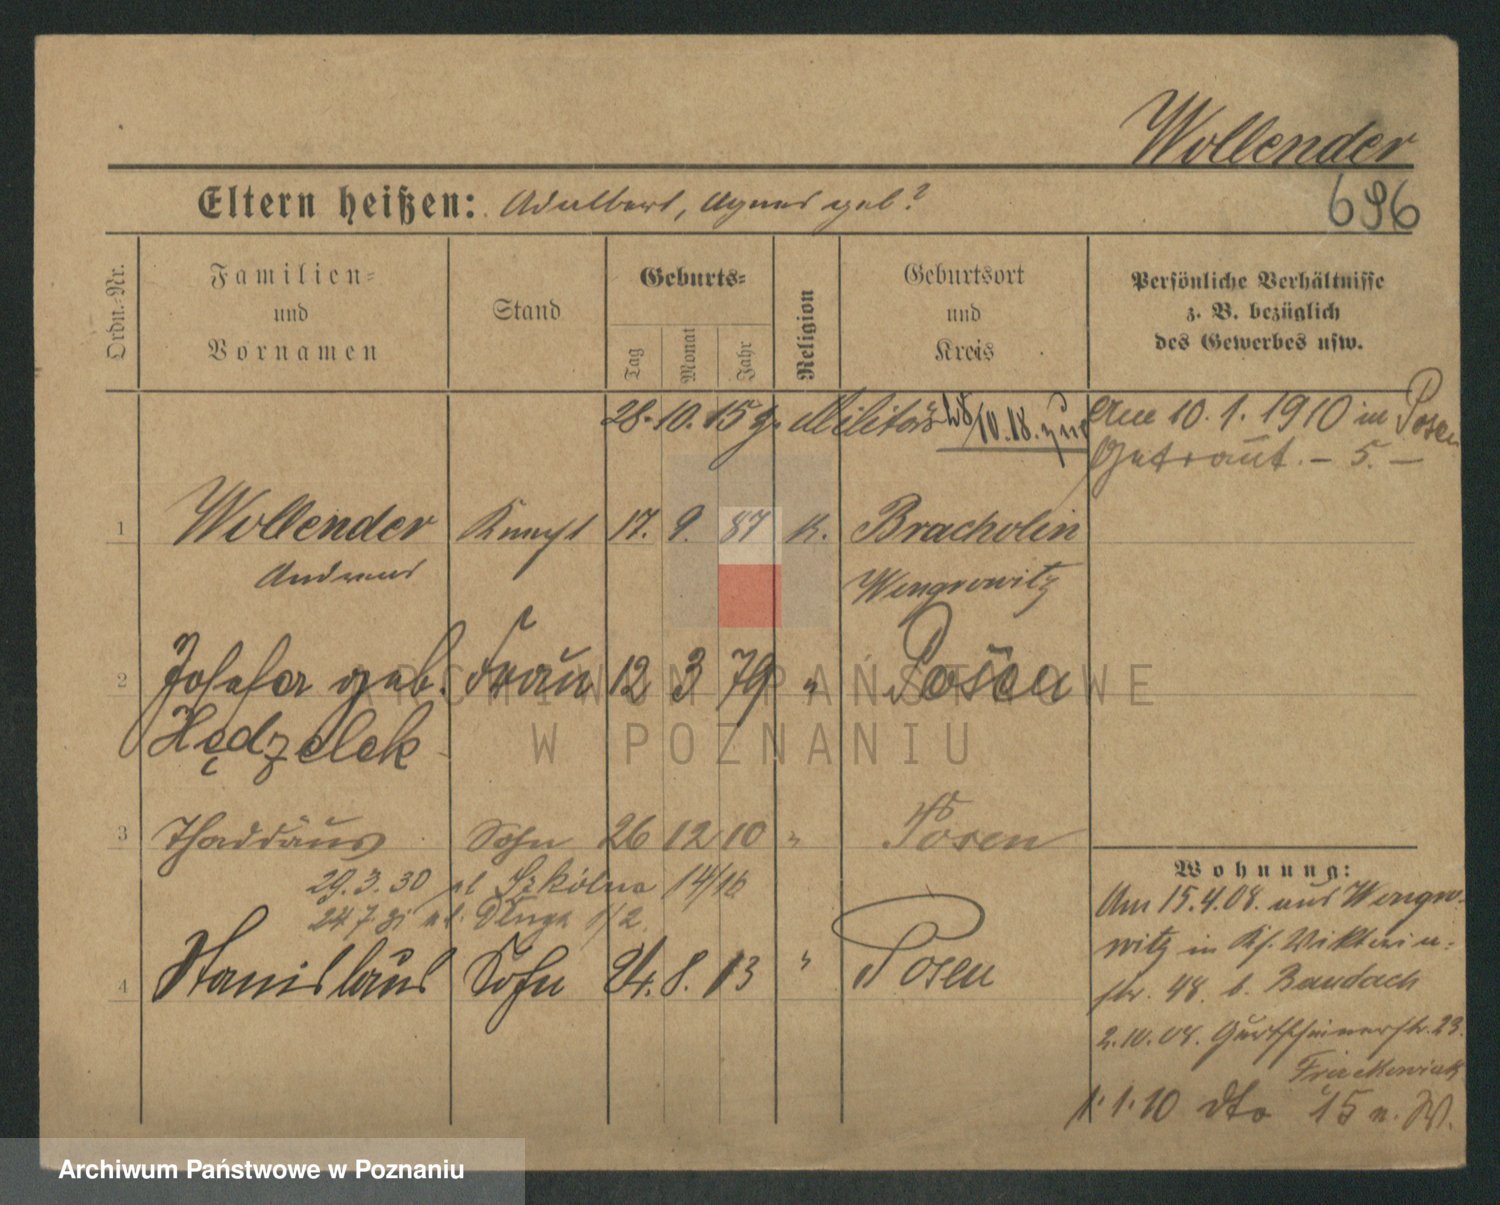 Wollender
696
Eltern heißen: Adalbert, Agnes geb?
Ordn.-Nr.
Familien-
und
Vornamen
Stand
Geburts-
Tag
Monat
Jahr
Religion
Geburtsort
und
Kreis
Persönliche Verhältnisse
z. B. bezüglich
des Gewerbes usw.
28.10.15 z. Militär 28/10.18. zur
Am 10.1.1910 in Posen
Getraut. – 5. –
1 Wollender Knecht 17. 9. 87 K. Bracholin
Andreas Wongrowitz
2 Josefa geb. Frau 12 3 79 " Posen
Hędzelek
3 Thaddäus Sohn 26 12 10 " Posen
29.3.30 pl Szkólna 14/16
24.7.31 ul. Długa 1/2.
4 Stanislaus Sohn 24. 8. 13 " Posen
Wohnung:
Am 15.4.08. aus Wongro-
witz in Viktoria-
str. 48. b. Baudach
2.10.08. 23.
Frackowiak
1.1.10 dto 15 n. W.
ARCHIWUM PAŃSTWOWE
W POZNANIU
Archiwum Państwowe w Poznaniu